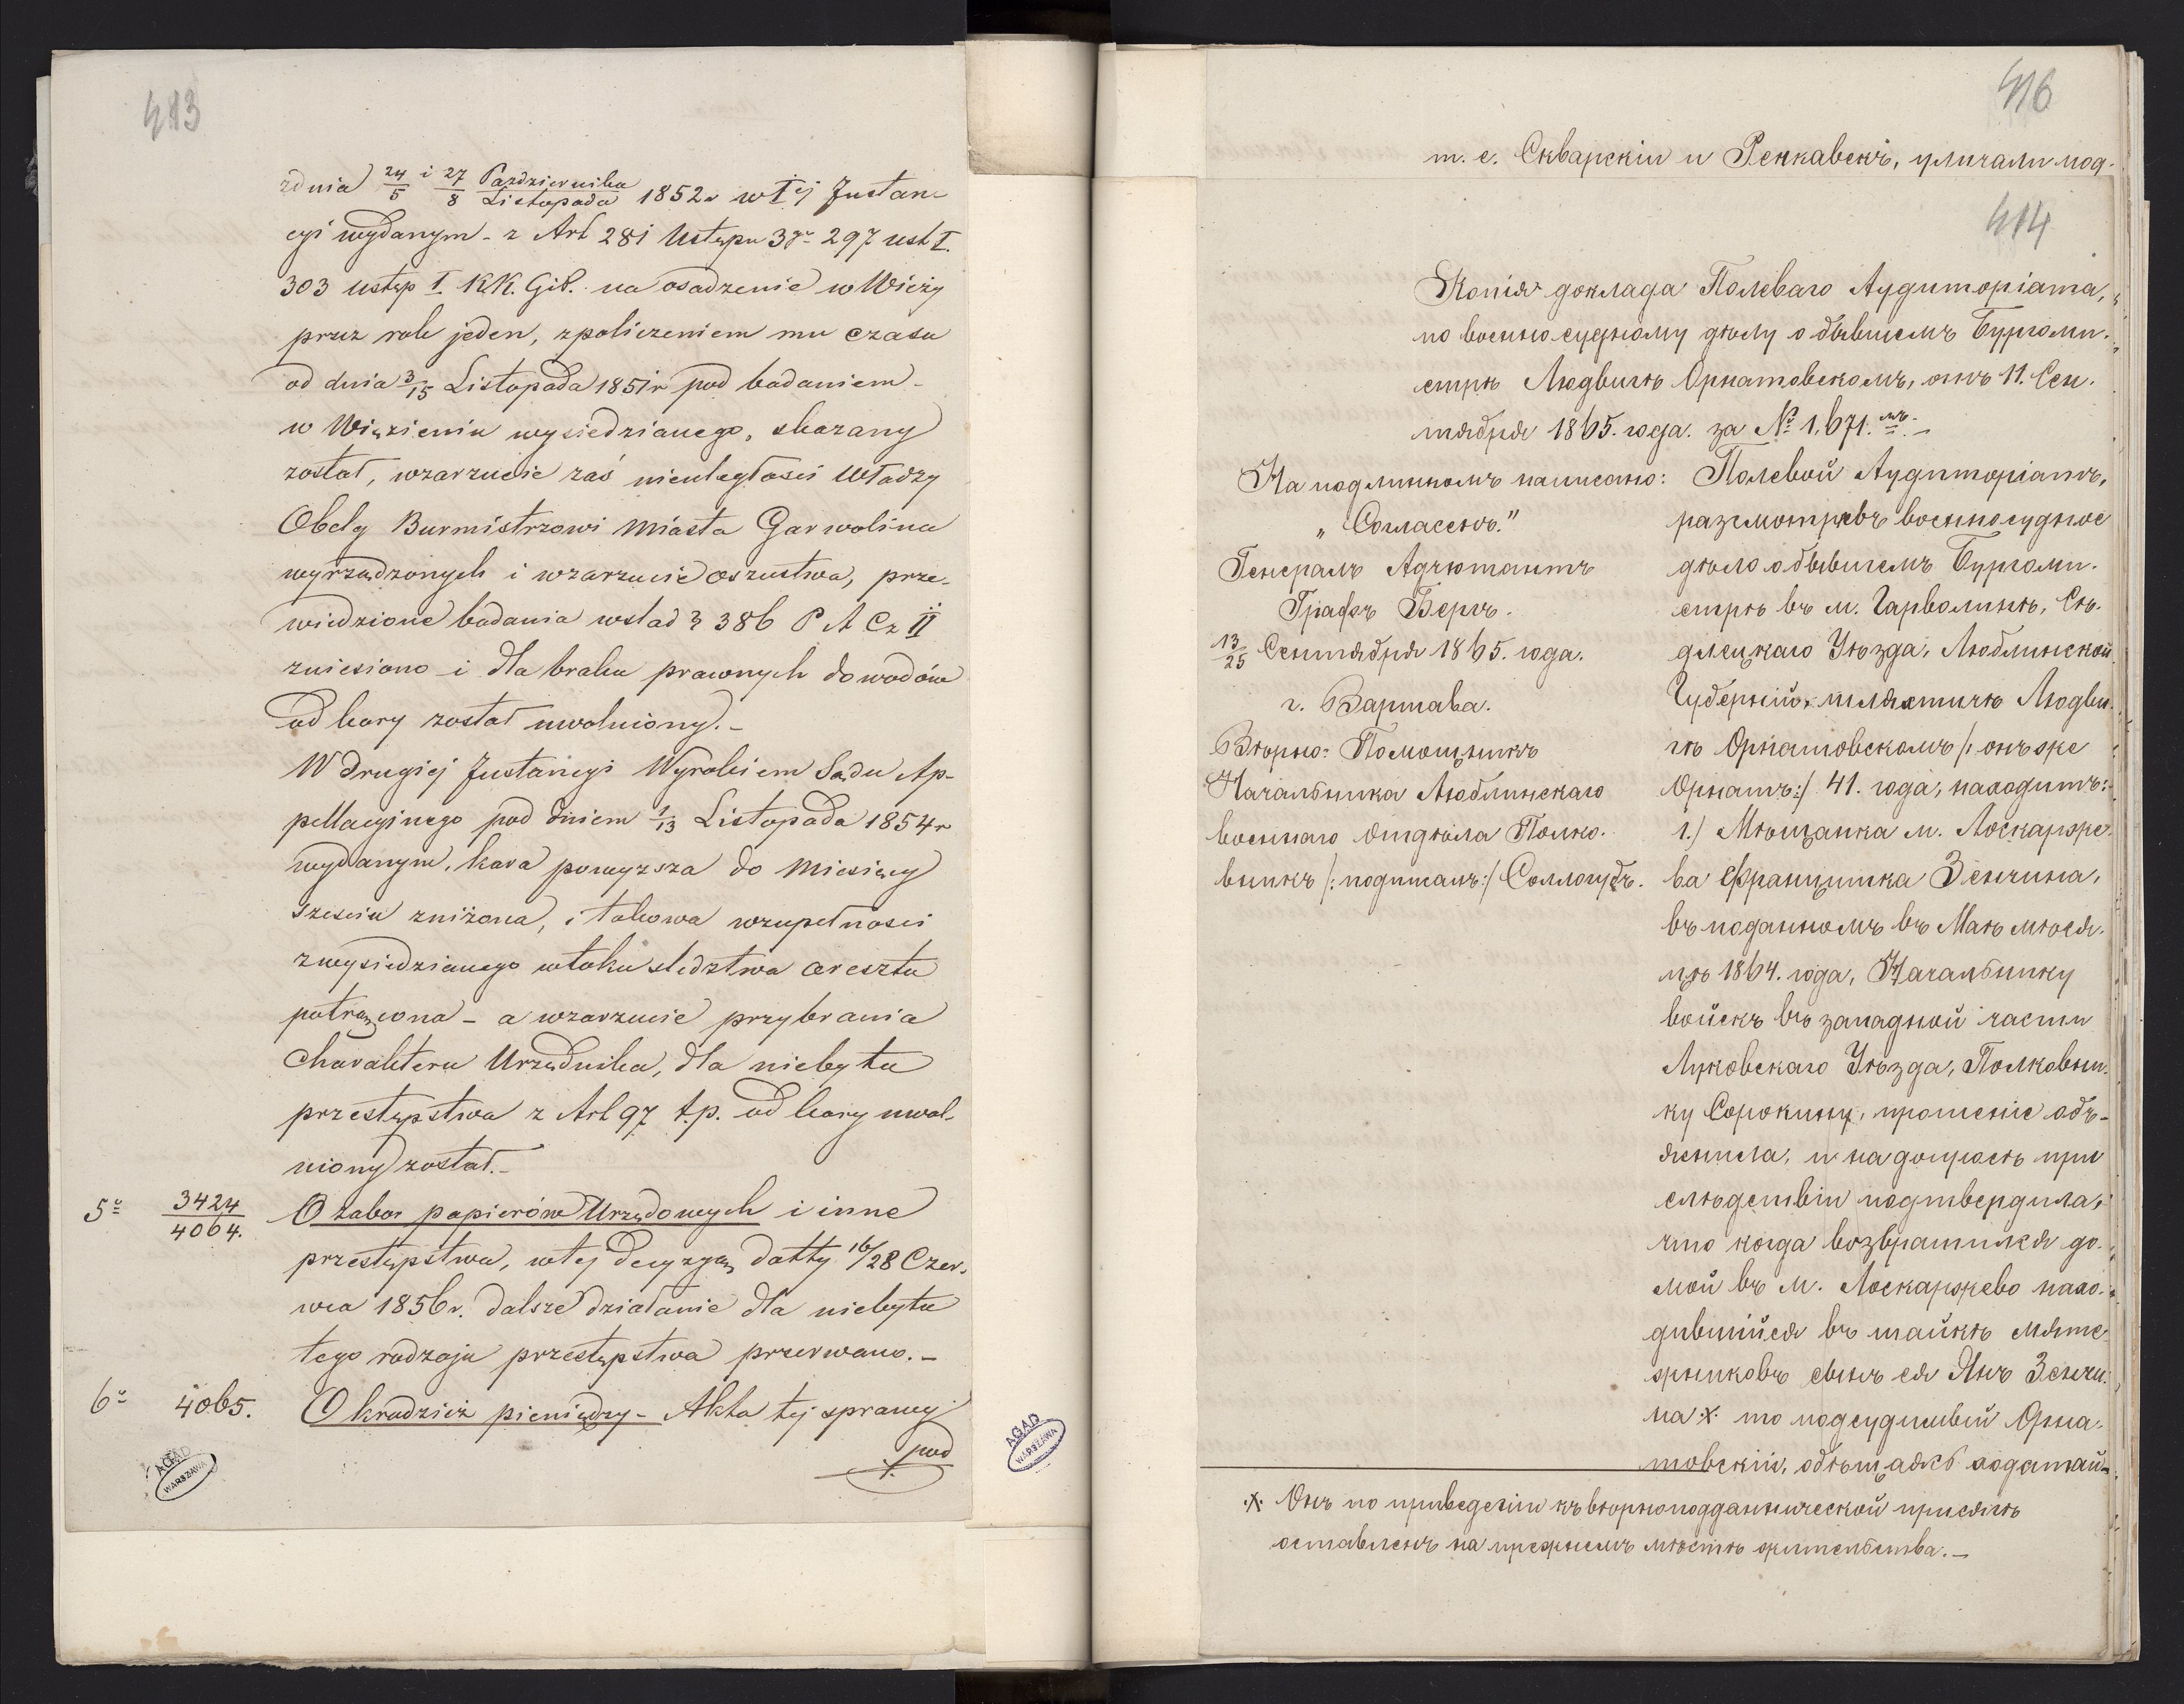 413
zdnia 24/5 i 27/8 Października/Listopada 1852 r w Iej Instan-
cyi wydanym - z Art 281 Ustępu 3go 297 ust I.
303 ustęp I. K.K. G i P. na osadzenie w Wieży
przez rok jeden, z policzeniem mu czasu
od dnia 3/15 Listopada 1851 r pod badaniem
w Więzieniu wysiedzianego, skazany
został, w zarzucie zaś nieuległości Władzy
Obelg Burmistrzowi Miasta Garwolina
wyrządzonych i w zarzucie oszustwa, prze-
wiedzione badania wślad § 386 P A Cz II
zniesiono i dla braku prawnych dowodów
od kary został uwolniony. -
W drugiej Instancyi Wyrokiem Sądu Ap-
pellacyjnego pod dniem 1/13 Listopada 1854 r
wydanym, kara powyższa do Miesięcy
sześciu zniżona, i takowa w zupełności
z wysiedzianego w toku śledztwa aresztu
potrącona - a w zarzucie przybrania
Charakteru Urzędnika, dla niebytu
przestępstwa z Art 97 t.p. od kary uwol-
niony został. -
5o 3424/4064. O zabor papierów Urzędowych i inne
przestępstwa, w tej decyzyą datty 16/28 Czer-
wca 1856 r. dalsze działanie dla niebytu
tego rodzaju przestępstwa przerwano. -
6o 4065. O kradzież pieniędzy - Akta tej sprawy
pod
AGAD
WARSZAWA
AGAD
WARSZAWA
416
т. е. Скварскій и Ренкавекъ, уличали под-
414
Копія доклада Полеваго Аудиторіата,
по военносудному дѣлу о бывшемъ Бургоми-
стрѣ Людвигѣ Орнатовскомъ, отъ 11. Сен-
тября 1865. года. за № 1,671.мъ -
На подлинномъ написано:
"Согласенъ."
Генералъ Адъютантъ
Графъ Бергъ.
13/25 Сентября 1865. года.
г. Варшава.
Вѣрно: Помощникъ
Начальника Люблинскаго
военнаго Отдѣла Полко-
вникъ /: подписалъ :/ Соллогубъ.
Полевой Аудиторіатъ,
разсмотрѣвъ военносудное
дѣло о бывшемъ Бургоми-
стрѣ въ м. Гарволинѣ, Сѣ-
длецкаго Уѣзда, Люблинской
Губерніи, шляхтичѣ Людви-
гѣ Орнатовскомъ /: онъ же
Орнатъ :/ 41. года, находитъ:
1./ Мѣщанка м. Лоскарже-
ва Францишка Зенчина,
въ поданномъ въ Маѣ мѣся-
цѣ 1864. года, Начальнику
войскъ въ западной части
Луковскаго Уѣзда, Полковни-
ку Сорокину, прошеніе объ-
яснила, и на допросѣ при
слѣдствіи подтвердила,
что когда возвратился до-
мой въ м. Лоскаржево нахо-
дившійся въ шайкѣ мяте-
жниковъ сынъ ея Янъ Зенчи-
на ·х· то подсудимый Орна-
товскій, обѣщаясь ходатай-
·х· Онъ по приведеніи къ вѣрноподданнической присягѣ
оставленъ на прежнемъ мѣстѣ жительства. -